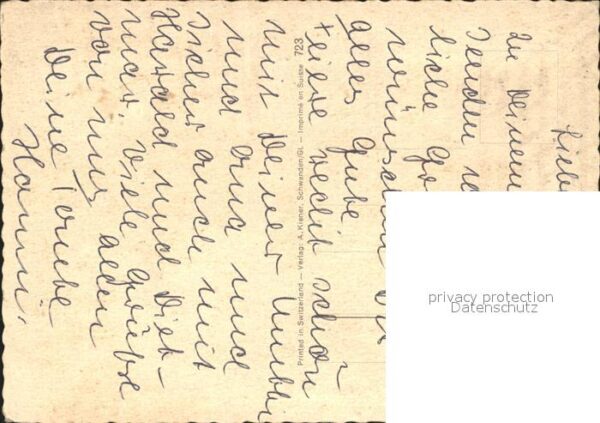 Liebe
Zu Deinem
senden
liche
wünschen
alles Gute
Feiere recht schön
mit Deiner Mutti
und Oma und
auch mit
Harald und Diet-
mar. Viele Grüße
von uns allen
Deine Tante
Hanni.
Printed in Switzerland — Verlag: A. Kiener, Schwanden/Gl. — Imprimé en Suisse 723
privacy protection
Datenschutz